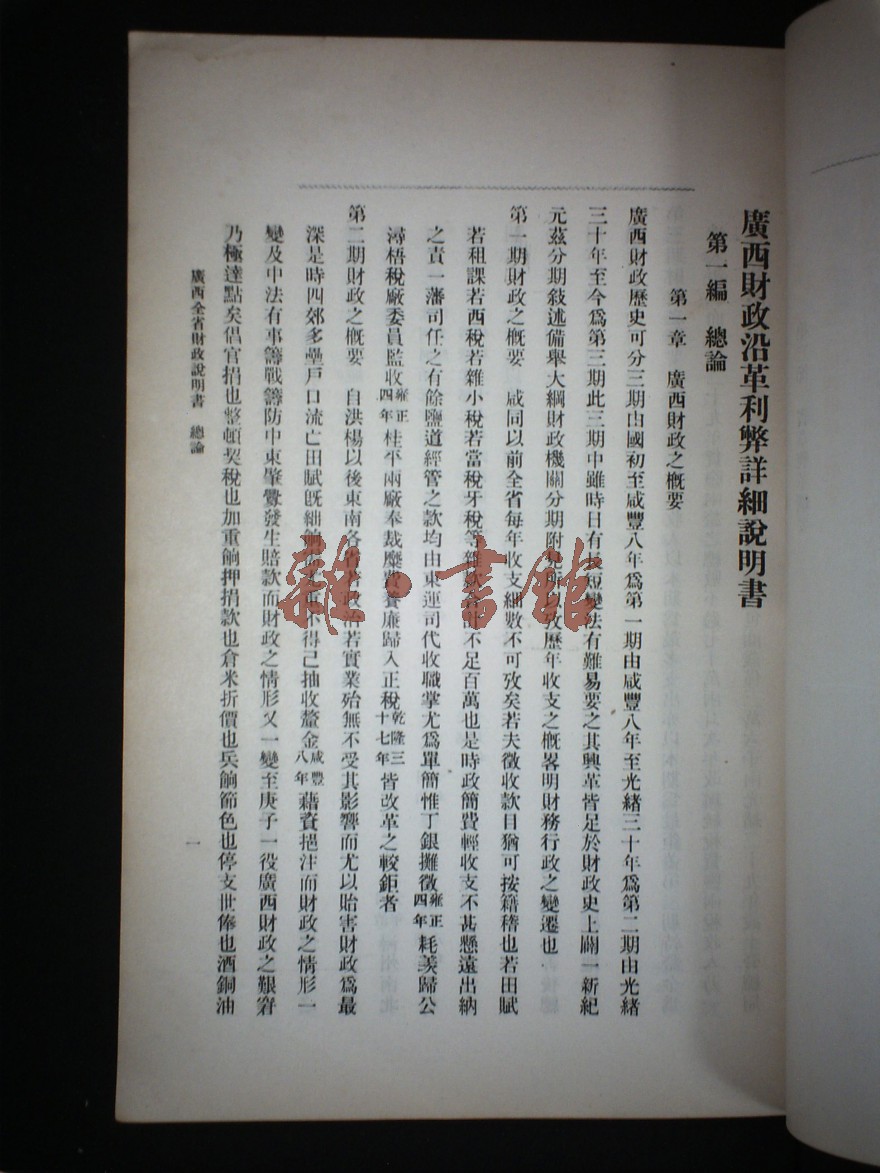 廣西財政沿革利弊詳細說明書
第一編 總論
第一章 廣西財政之概要
廣西財政歷史可分三期由國初至咸豐八年爲第一期由咸豐八年至光緒三十年爲第二期由光緒
三十年至今爲第三期此三期中雖時日有長短變法有難易要之其興革皆足於財政史上闢一新紀
元茲分期敍述備舉大綱財政機關分期附見所以攷歷年收支之概畧明財務行政之變遷也
第一期財政之概要 咸同以前全省每年收支細數不可攷矣若夫徵收款目猶可按籍稽也若田賦
若租課若西稅若雜小稅若當稅牙稅等雜款 不足百萬也是時政簡費輕收支不甚懸遠出納
之責一藩司任之有餘鹽道經管之款均由東運司代收職掌尤爲單簡惟丁銀攤徵雍正四年耗羨歸公
潯梧稅廠委員監收雍正四年桂平兩廠奉裁糜費養廉歸入正稅乾隆三十七年皆改革之較鉅者
第二期財政之概要 自洪楊以後東南各省若政治若實業殆無不受其影響而尤以貽害財政爲最
深是時四郊多壘戶口流亡田賦旣絀餉 不得己抽收釐金咸豐八年藉資挹注而財政之情形一
變及中法有事籌戰籌防中東肇釁發生賠款而財政之情形又一變至庚子一役廣西財政之艱窘
乃極達點矣倡官捐也整頓契稅也加重餉押捐款也倉米折價也兵餉節色也停支世俸也酒鍋油
廣西全省財政說明書 總論
一
雜·書館